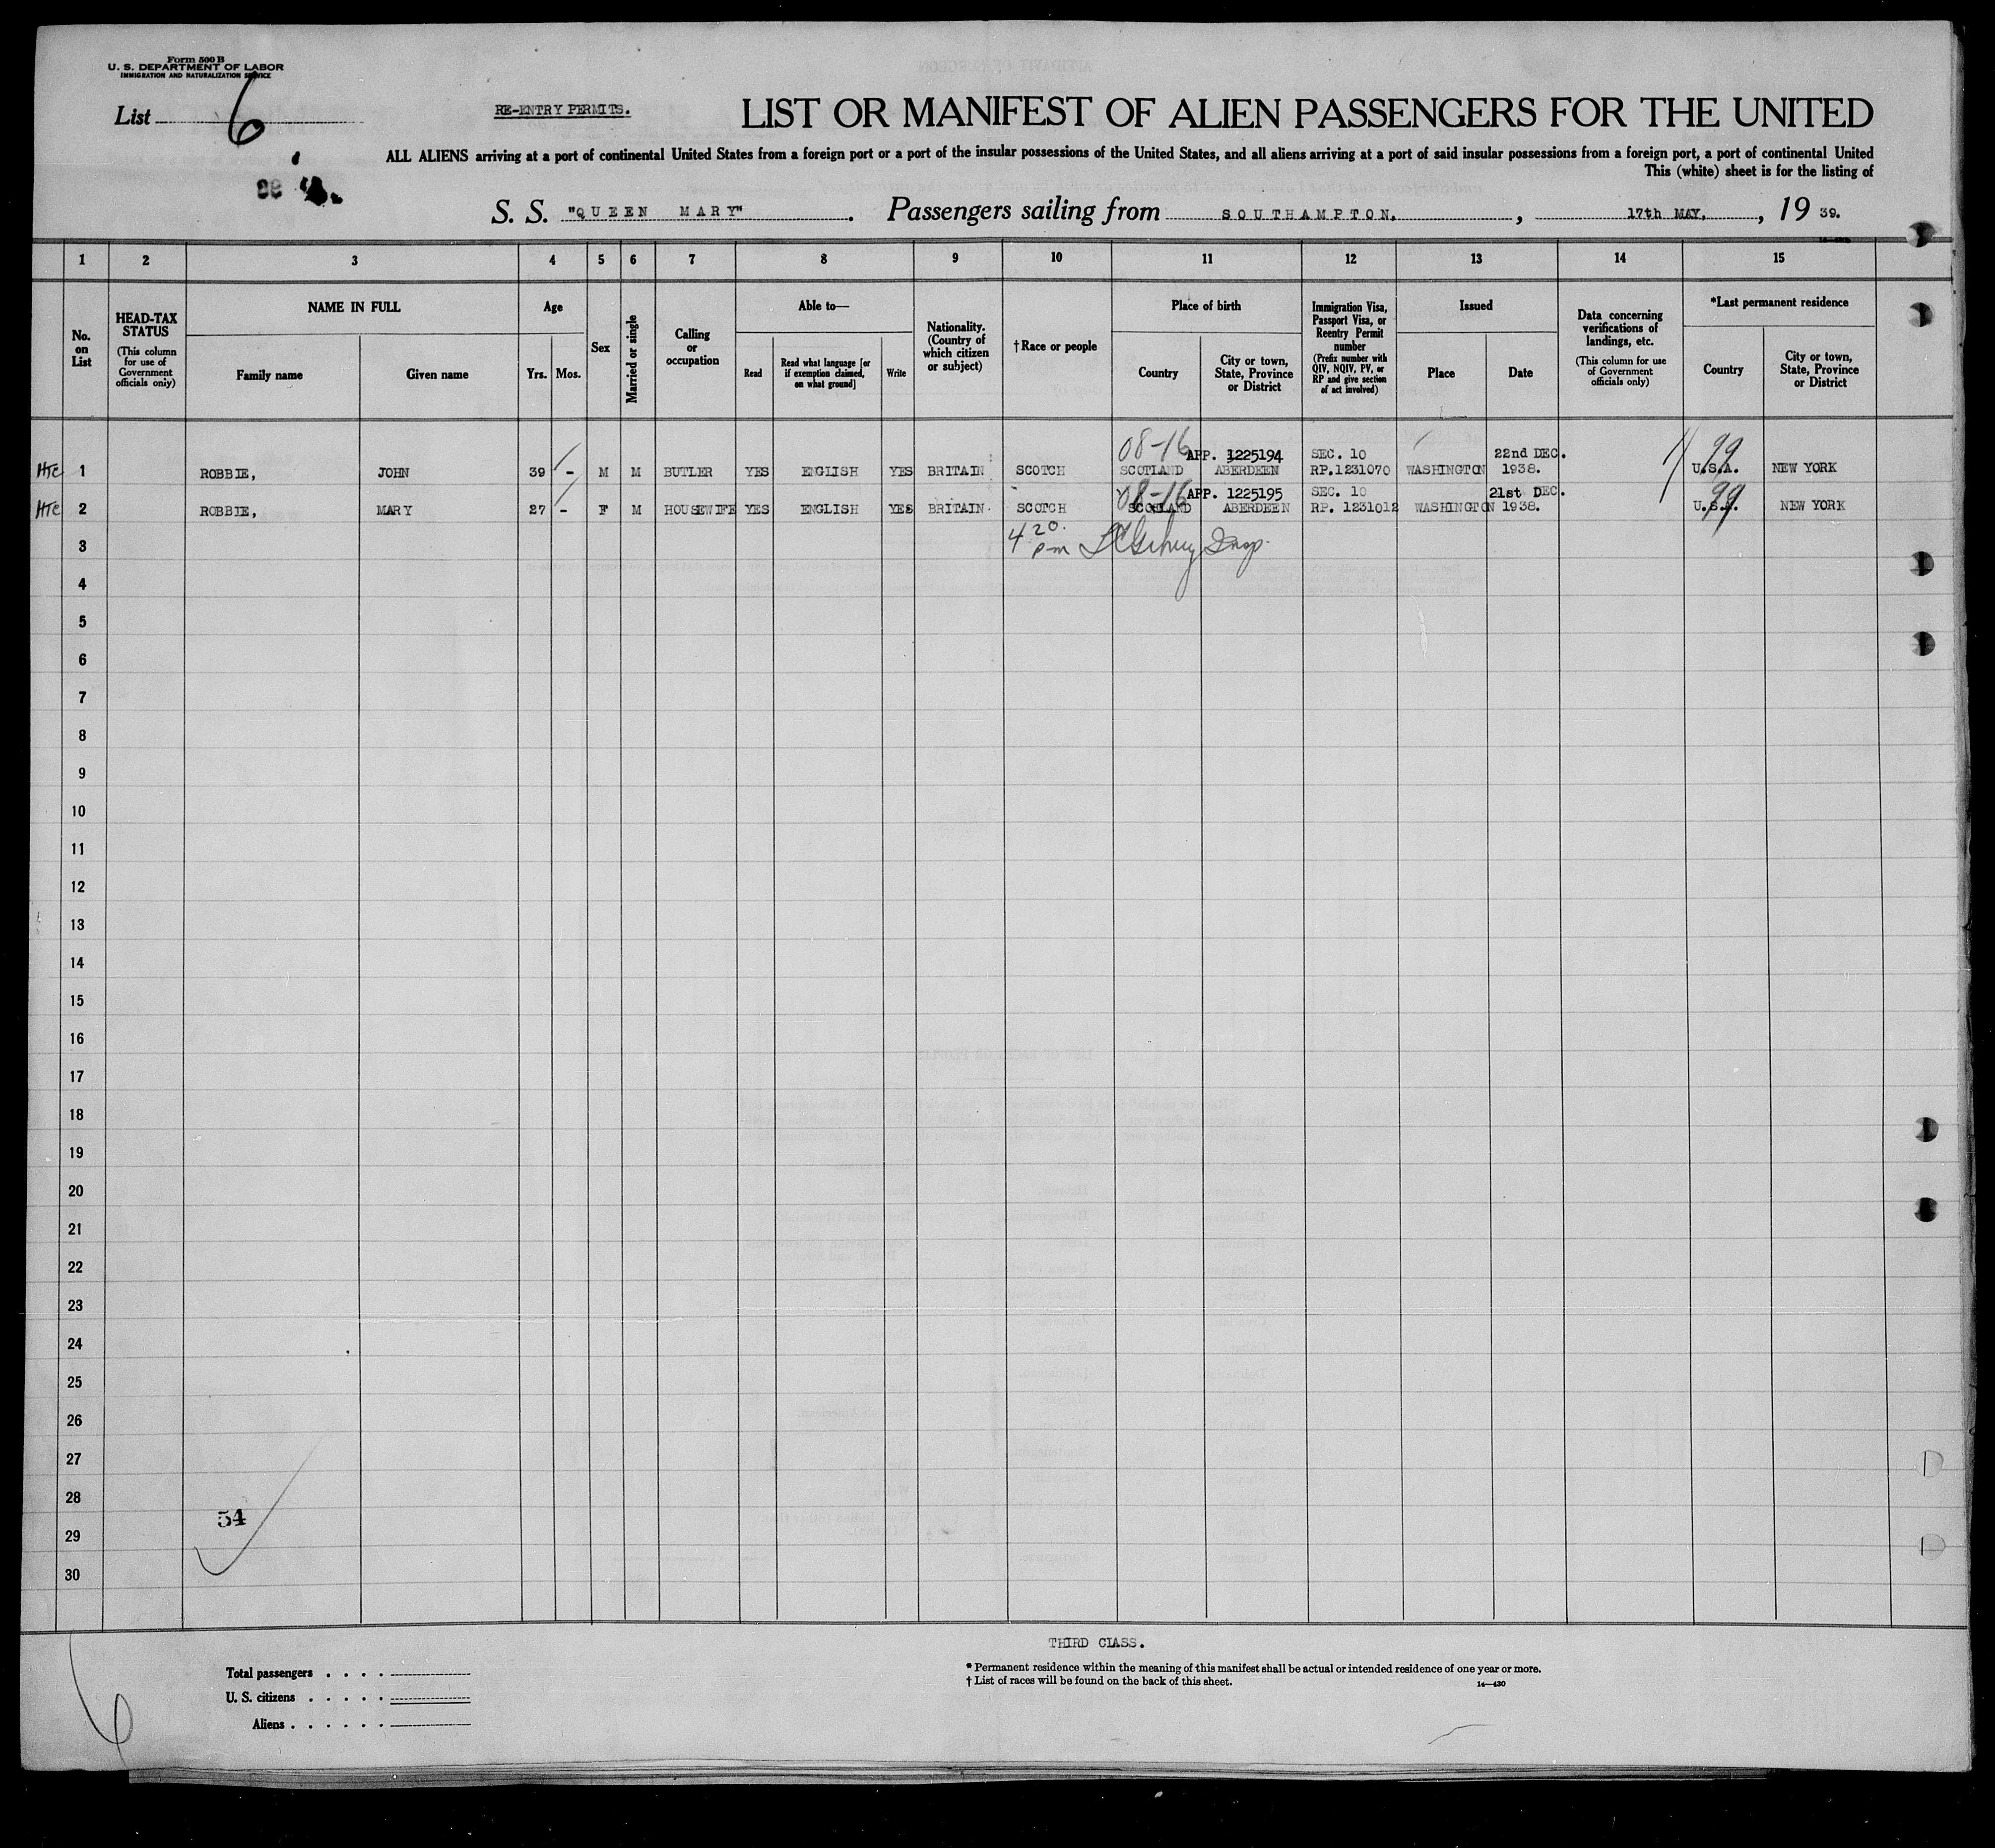 Form 500 B
U. S. DEPARTMENT OF LABOR
IMMIGRATION AND NATURALIZATION SERVICE
List 6
RE-ENTRY PERMITS.
LIST OR MANIFEST OF ALIEN PASSENGERS FOR THE UNITED
ALL ALIENS arriving at a port of continental United States from a foreign port or a port of the insular possessions of the United States, and all aliens arriving at a port of said insular possessions from a foreign port, a port of continental United
This (white) sheet is for the listing of
S. S. "QUEEN MARY". Passengers sailing from SOUTHAMPTON, , 17th MAY, , 19 39.
1 2 3 4 5 6 7 8 9 10 11 12 13 14 15
No. on List
HEAD-TAX STATUS (This column for use of Government officials only)
NAME IN FULL
Family name
Given name
Age
Yrs. Mos.
Sex
Married or single
Calling or occupation
Able to—
Read
Read what language [or if exemption claimed, on what ground]
Write
Nationality. (Country of which citizen or subject)
†Race or people
Place of birth
Country
City or town, State, Province or District
Immigration Visa, Passport Visa, or Reentry Permit number (Prefix number with QIV, NQIV, PV, or RP and give section of act involved)
Issued
Place
Date
Data concerning verifications of landings, etc. (This column for use of Government officials only)
*Last permanent residence
Country
City or town, State, Province or District
08-16 APP. 1225194 SEC. 10 22nd DEC. 99
HTC 1 ROBBIE, JOHN 39 - M M BUTLER YES ENGLISH YES BRITAIN SCOTCH SCOTLAND ABERDEEN RP.1231070 WASHINGTON 1938. U.S.A. NEW YORK
08-16 APP. 1225195 SEC. 10 21st DEC. 99
HTC 2 ROBBIE, MARY 27 - F M HOUSEWIFE YES ENGLISH YES BRITAIN. SCOTCH SCOTLAND ABERDEEN RP. 1231012 WASHINGTON 1938. U.S.A. NEW YORK
3 4 20 pm Insp.
4
5
6
7
8
9
10
11
12
13
14
15
16
17
18
19
20
21
22
23
24
25
26
27
28
54
29
30
THIRD CLASS.
Total passengers . . . .
U. S. citizens . . . . .
Aliens . . . . . .
* Permanent residence within the meaning of this manifest shall be actual or intended residence of one year or more.
† List of races will be found on the back of this sheet.
14—430
6